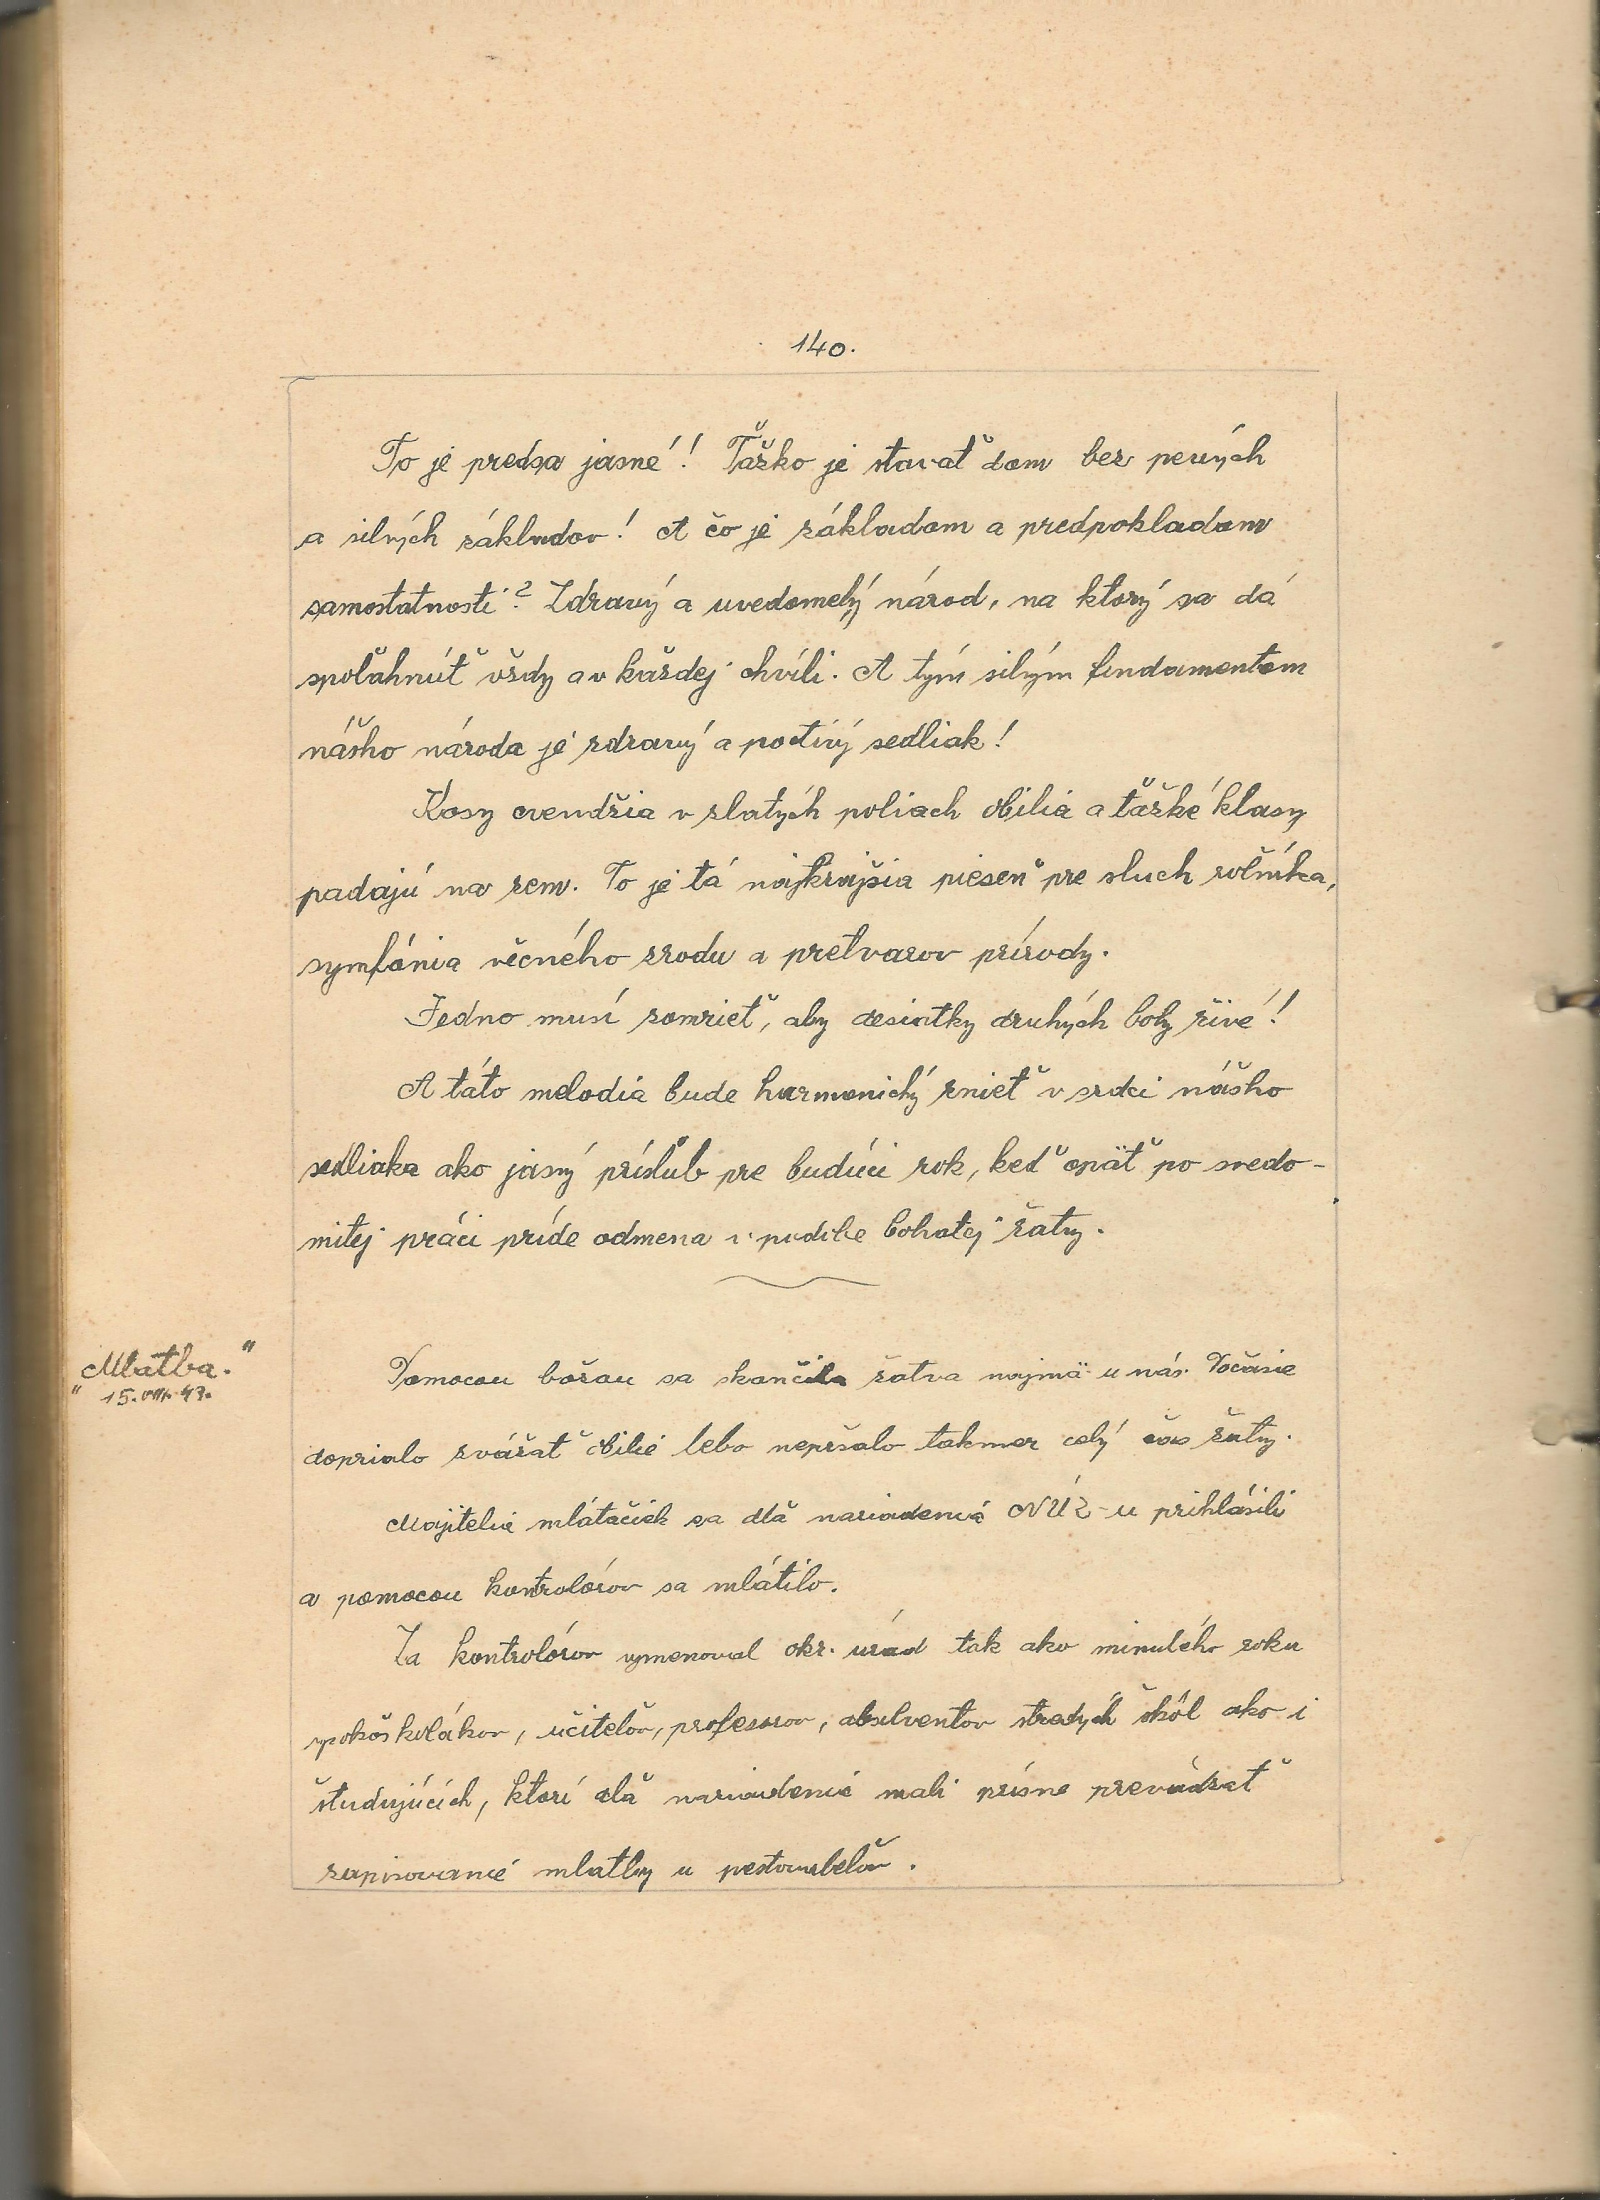 140.
To je predsa jasné! Ťažko je stavať dom bez pevných
a silných základov! A čo je základom a predpokladom
samostatnosti? Zdravý a uvedomelý národ, na ktorý sa dá
spoľahnúť vždy a v každej chvíli. A tým silným fundamentom
nášho národa je zdravý a poctivý sedliak!
Kosy cvendžia v zlatých poliach obilia a ťažké klasy
padajú na zem. To je tá najkrajšia pieseň pre sluch roľníka,
symfónia věcného zrodu a pretvarov prírody.
Jedno musí zomrieť, aby desiatky druhých boly živé!
A táto melodia bude harmonický znieť v srdci nášho
sedliaka ako jasný prísľub pre budúci rok, keď opäť po svedo-
mitej práci príde odmena v podobe bohatej žatvy.
„Mlatba."
15. VIII. 43.
Pomocou božou sa skončila žatva najmä u nás. Počasie
doprialo zvážať obilie lebo nepršalo takmer celý čas žatvy.
Majitelia mlátačiek sa dľa nariadenia NÚZ-u prihlásili
a pomocou kontrolórov sa mlátilo.
Za kontrolórov vymenoval okr. úrad tak ako minulého roku
vysokoškolákov, učiteľov, professorov, absolventov stredných škôl ako i
študujúcich, ktorí dľa nariadenia mali prísne prevádzať
zapisovanie mlatby u pestovateľov.